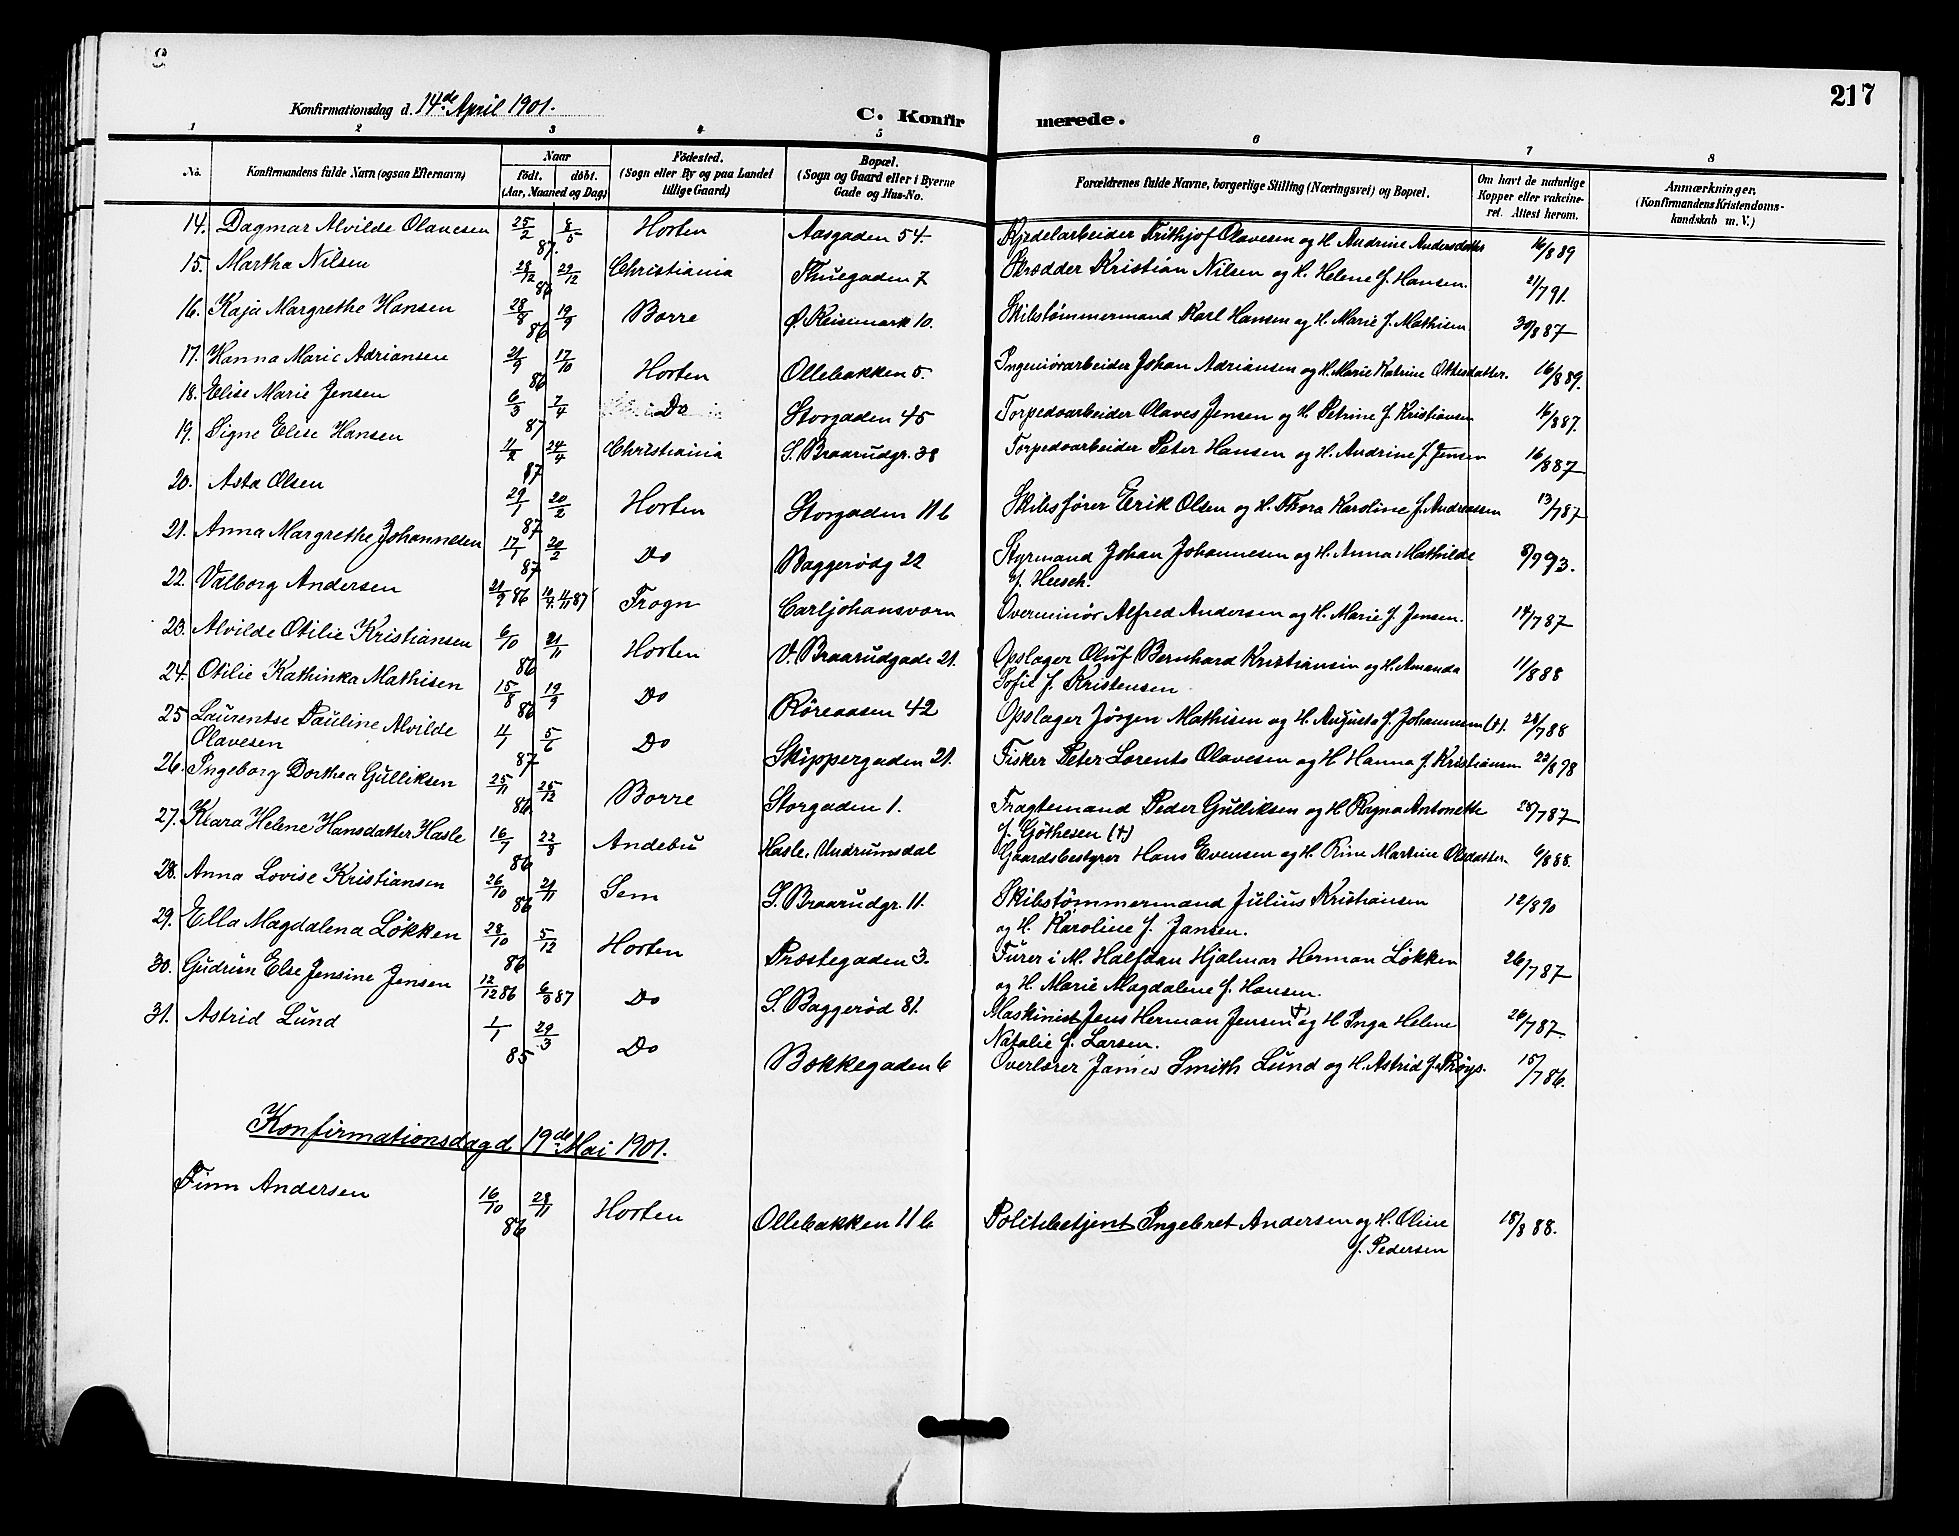 Konfirmationsdag d. 14de April 1901.
C. Konfirmerede.
217
1 2 3 4 5 6 7 8
No. Konfirmandens fulde Navn (ogsaa Efternavn) Naar født. døbt. (Aar, Maaned og Dag) Födested. (Sogn eller By og paa Landet tillige Gaard) Bopæl. (Sogn og Gaard eller i Byerne Gade og Hus-No. Forældrenes fulde Navne, borgerlige Stilling (Næringsvei) og Bopæl. Om havt de naturlige Kopper eller vakcineret. Attest herom. Anmærkninger. (Konfirmandens Kristendomskundskab m. V.)
14. Dagmar Alvilde Olavesen 25/2 8/5 87. Horten Aasgaden 54. Kjedelarbeider Frithjof Olavesen og H. Andrine Andersdatter 16/8 89
15. Martha Nilsen 28/12 29/12 86 Christiania Thuegaden 7 Skrædder Kristian Nilsen og H. Helene f. Hansen. 21/7 91.
16. Kaja Margrethe Hansen 28/8 19/9 86 Borre Ø. Keisemark 10. Skibstømmermand Karl Hansen og H. Marie f. Mathisen 30/8 87
17. Hanna Marie Adriansen 21/9 17/10 86 Horten Ollebakken 5. Ingeniørarbeider Johan Adriansen og H. Marie Katrine Ottersdatter. 16/8 89.
18. Elise Marie Jensen 6/3 7/4 87 Do Storgaden 45 Torpedoarbeider Olaves Jensen og H. Petrine f. Kristiansen 16/8 87.
19. Signe Elise Hansen 11/2 24/4 87 Christiania S. Braarudgr. 38 Torpedoarbeider Peter Hansen og H. Andrine f. Jensen 16/8 87
20. Asta Olsen 29/1 20/2 87 Horten Storgaden 11 b Skibsfører Erik Olsen og H. Thora Karoline f. Andreassen 13/7 87
21. Anna Margrethe Johannesen 17/1 20/2 87 Do Baggerødg 22 Styrmand Johan Johannesen og H. Anna Mathilde f. Huseh. 8/9 93.
22. Valborg Andersen 21/9 86 87 Frogn Carljohansvorn Overminør Alfred Andersen og H. Marie f. Jensen. 14/7 87
23. Alvilde Otilie Kristiansen 6/10 21/11 86 Horten V. Braarudgade 21. Opslager Oluf Bernhard Kristiansen og H. Amanda Sofil f. Kristensen 11/8 88
24. Otilie Kathinka Mathisen 15/8 19/9 86 Do Røreaasen 42 Opslager Jørgen Mathisen og H. Augusta f. Johannesen (†). 28/7 88
25 Laurentse Pauline Alvilde Olavesen 4/1 5/6 87 Do Skippergaden 21. Fisker Peter Lorents Olavesen og H Hanna f. Kristiansen 22/8 98
26. Ingeborg Dorthea Gulliksen 25/11 26/12 86. Borre Storgaden 1. Fragtemand Peder Gulliksen og H Ragna Antonette f. Gøthesen (†) 25/7 87
27. Klara Helene Hansdatter Hasle 16/7 22/8 86 Andebu Hasle, Undrumsdal Gaardsbestyrer Hans Evensen og H. Rine Martine Olsdatter. 6/8 88.
28. Anna Lovise Kristiansen 26/10 21/11 86 Sem S. Braarudgr. 11. Skibstømmermand Julius Kristiansen og H. Karoline f. Jansen. 12/8 90
29. Ella Magdalena Løkken 28/10 5/12 86 Horten Præstegaden 3. Furer i M. Halfdan Hjalmar Herman Løkken og H. Marie Magdalene f. Hansen. 26/7 87
30. Gudrun Else Jensine Jensen 12/12 86 6/3 87 Do S. Baggerød 81. Maskinist Jens Herman Jensen † og H Inga Helene Natalie f. Larsen. 26/7 87.
31. Astrid Lund 1/1 29/3 85 Do Bokkegaden 6 Overlærer James Smith Lund og H. Astrid f. Prøys. 15/7 86.
Konfirmationsdag d 19de Mai 1901.
Finn Andersen 16/10 28/11 86 Horten Ollebakken 11 b Politibetjent Ingebret Andersen og H. Oline f. Pedersen 18/8 88.